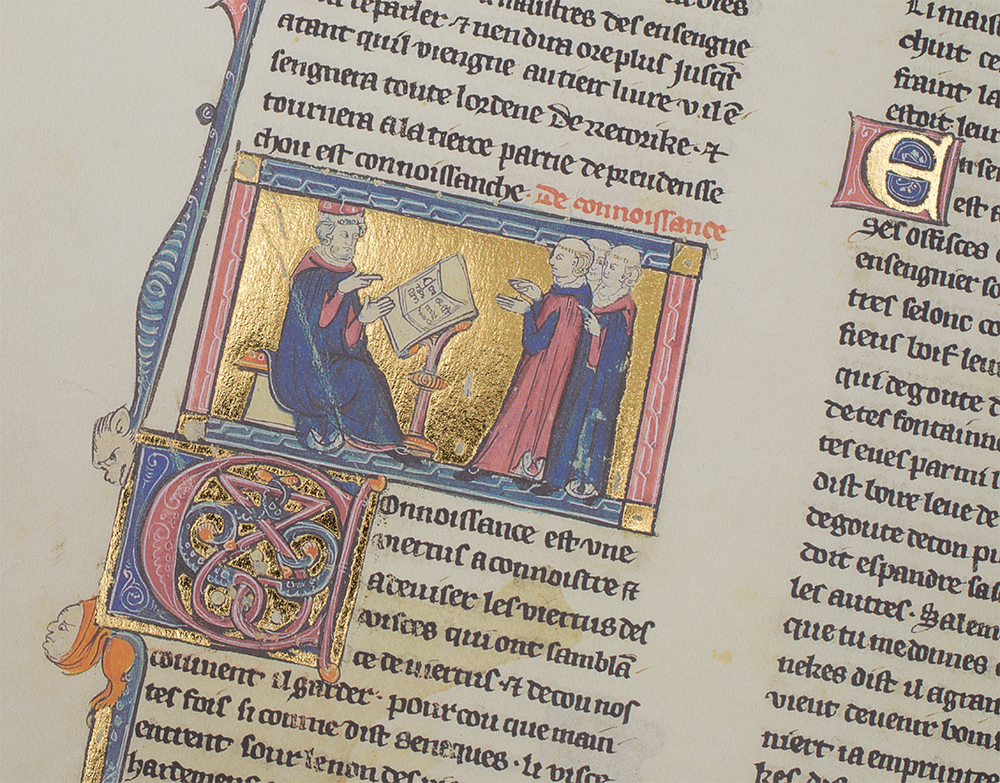 reparler ⁊ nen dira ore plus jusq̃
atant quil viengne au tierc liure v il ẽ
sengnera toute lordene De retorike ⁊
tournera a la tierce partie de prendensse
chou est connoissanche. De connoissance
Connoissance est vne
viertus a connoistre ⁊
a deuiser les viertus des
visces qui ont samblã
ce de viertus ⁊ de cou nos
couuient il garder. pour cou que main
tes fois si comme dist seneques. li visce
entrent sour le non des
hardemens
Li maist
chuit ce
fraint la
estoit leur
Ensen
est
ges offisces
ensengnier
tres selonc
fiens boif leu
qui degoute d
de tes fontainne
tes eues parmi l
dist boire leue de
degoute de ton pu
doit espandre sa
les autres. Salem
que tu me donnes
nekes dist il a gran
vient deuenir boin
niert ia emprunte